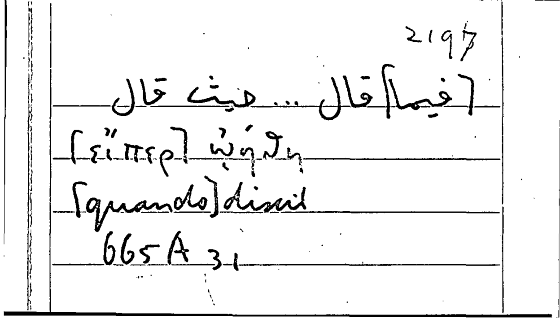 2197
[فيما] قال ... حيث قال
[εἴπερ] ᾠήθη
[quando] dixit
665 A 31